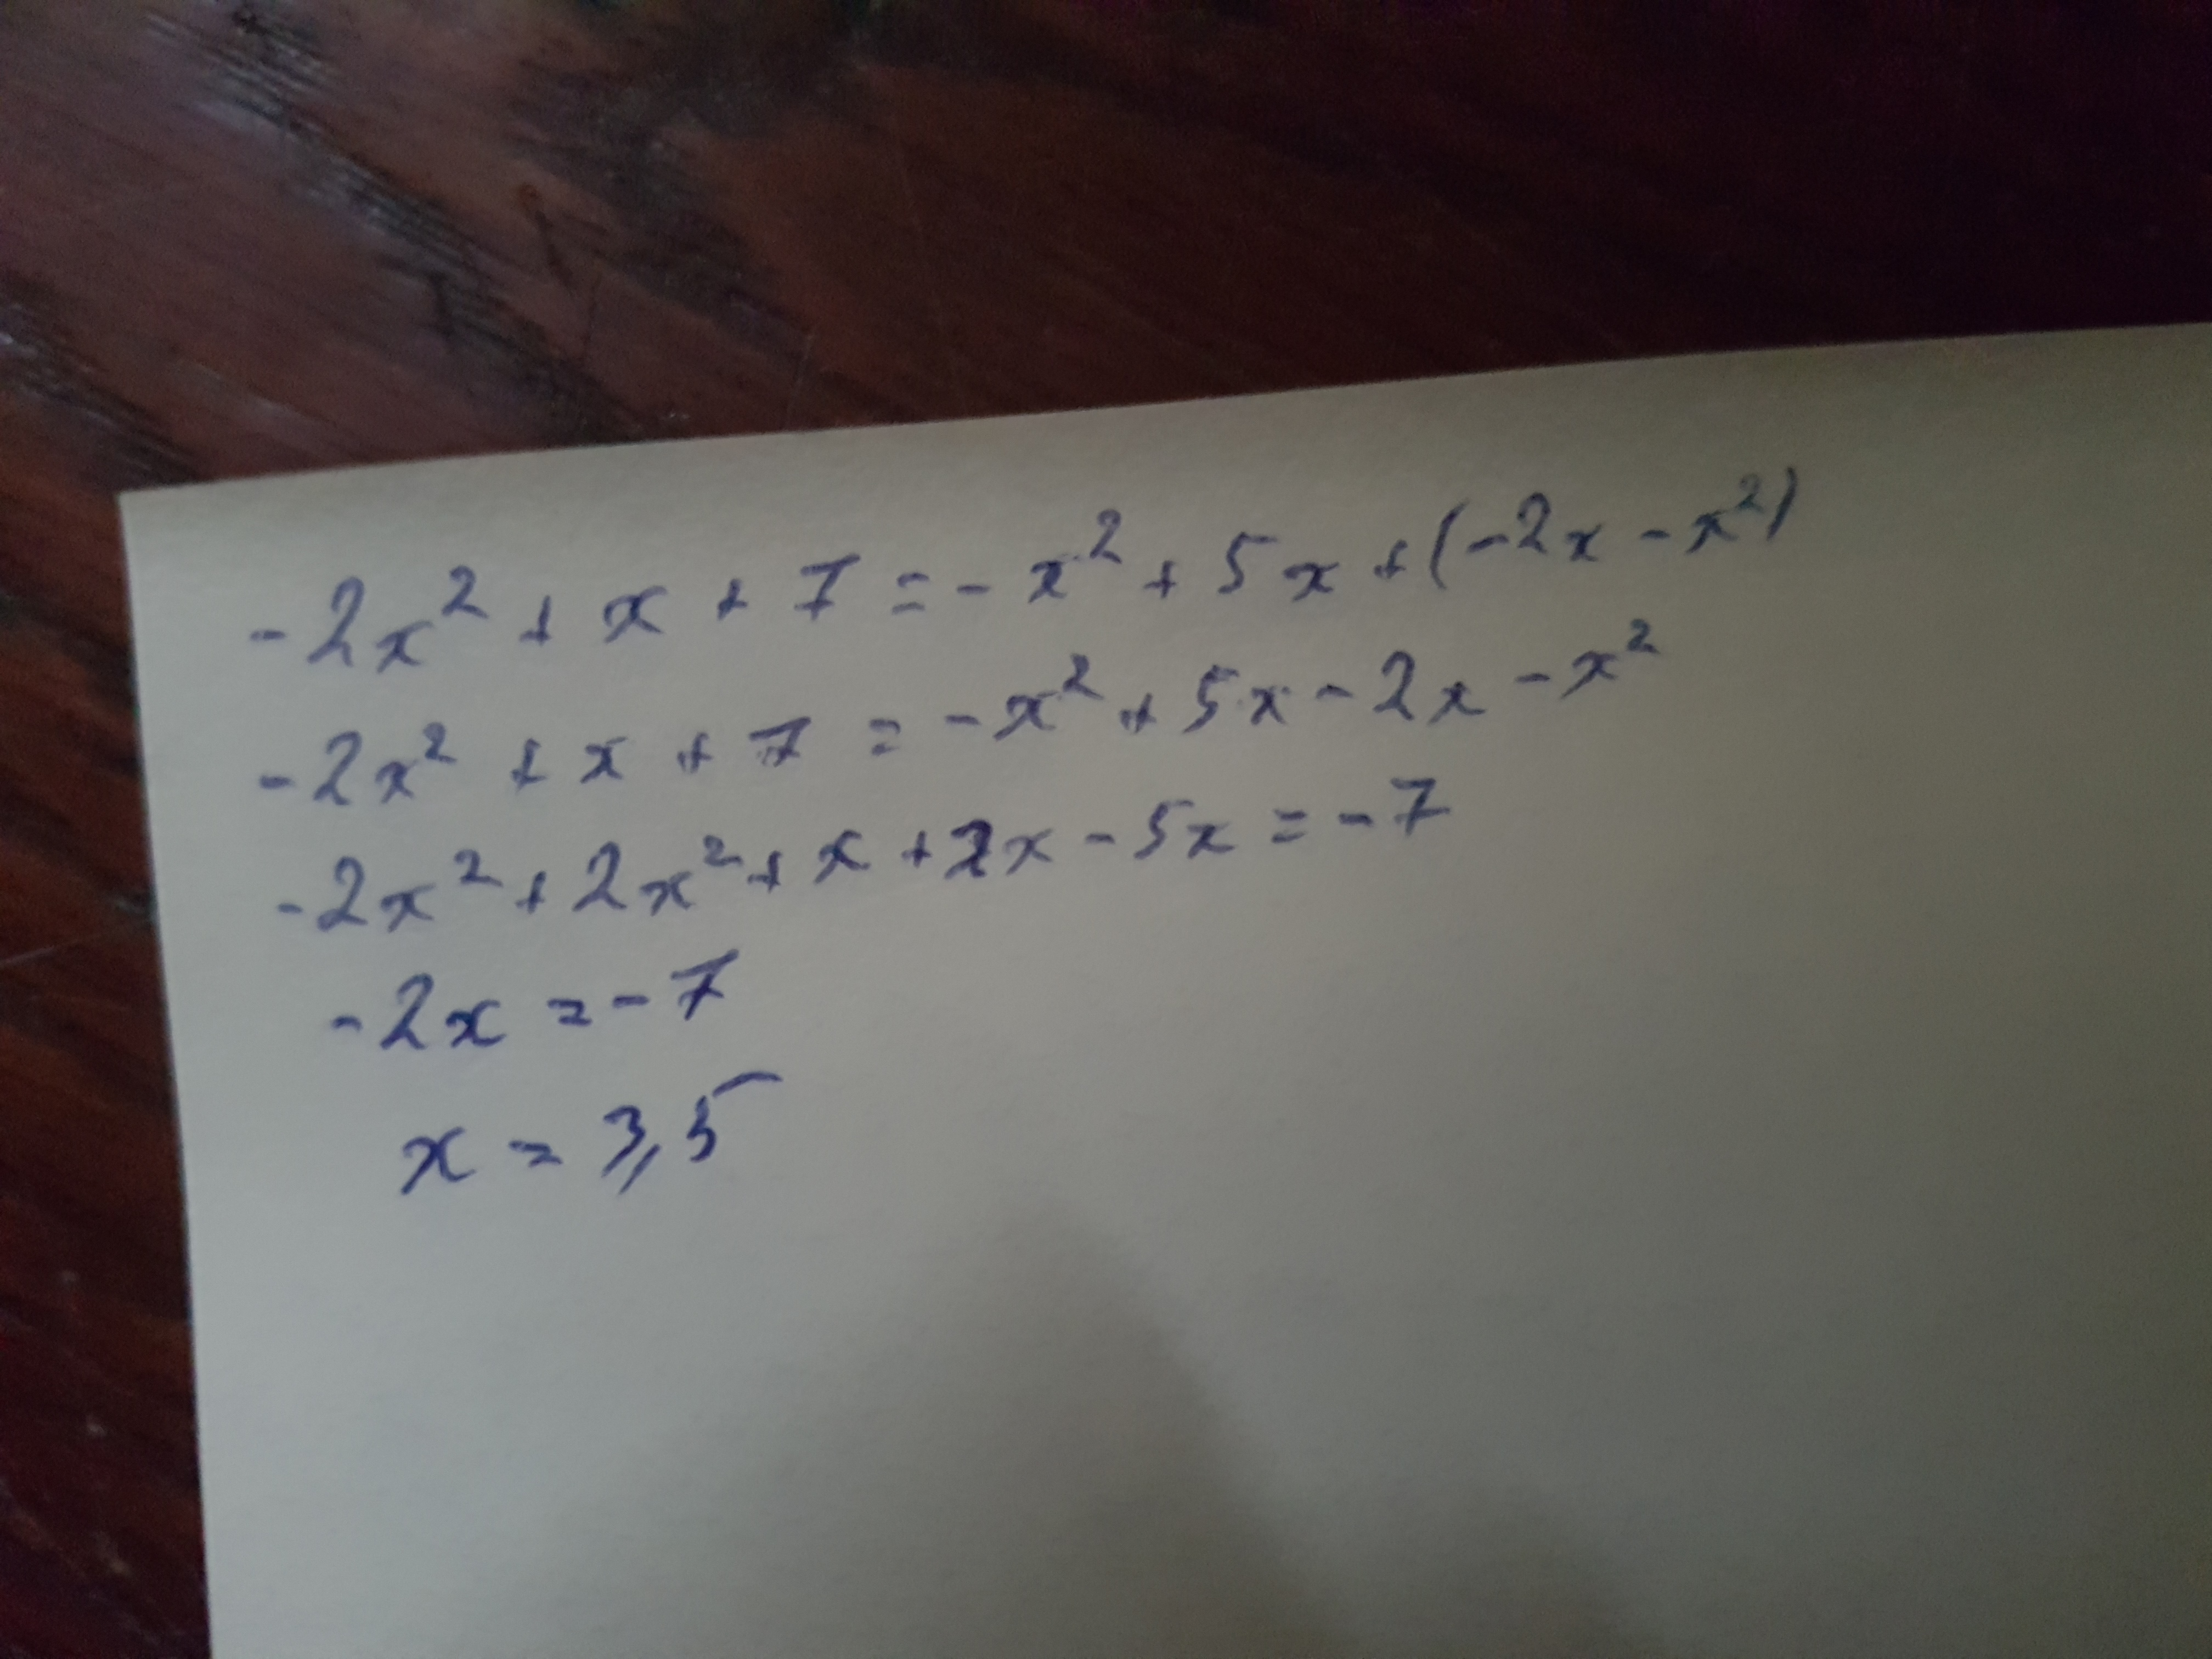 -2x² + x + 7 = -x² + 5x + (-2x - x²)
-2x² + x + 7 = -x² + 5x - 2x - x²
-2x² + 2x² + x + 2x - 5x = -7
-2x = -7
x = 3,5